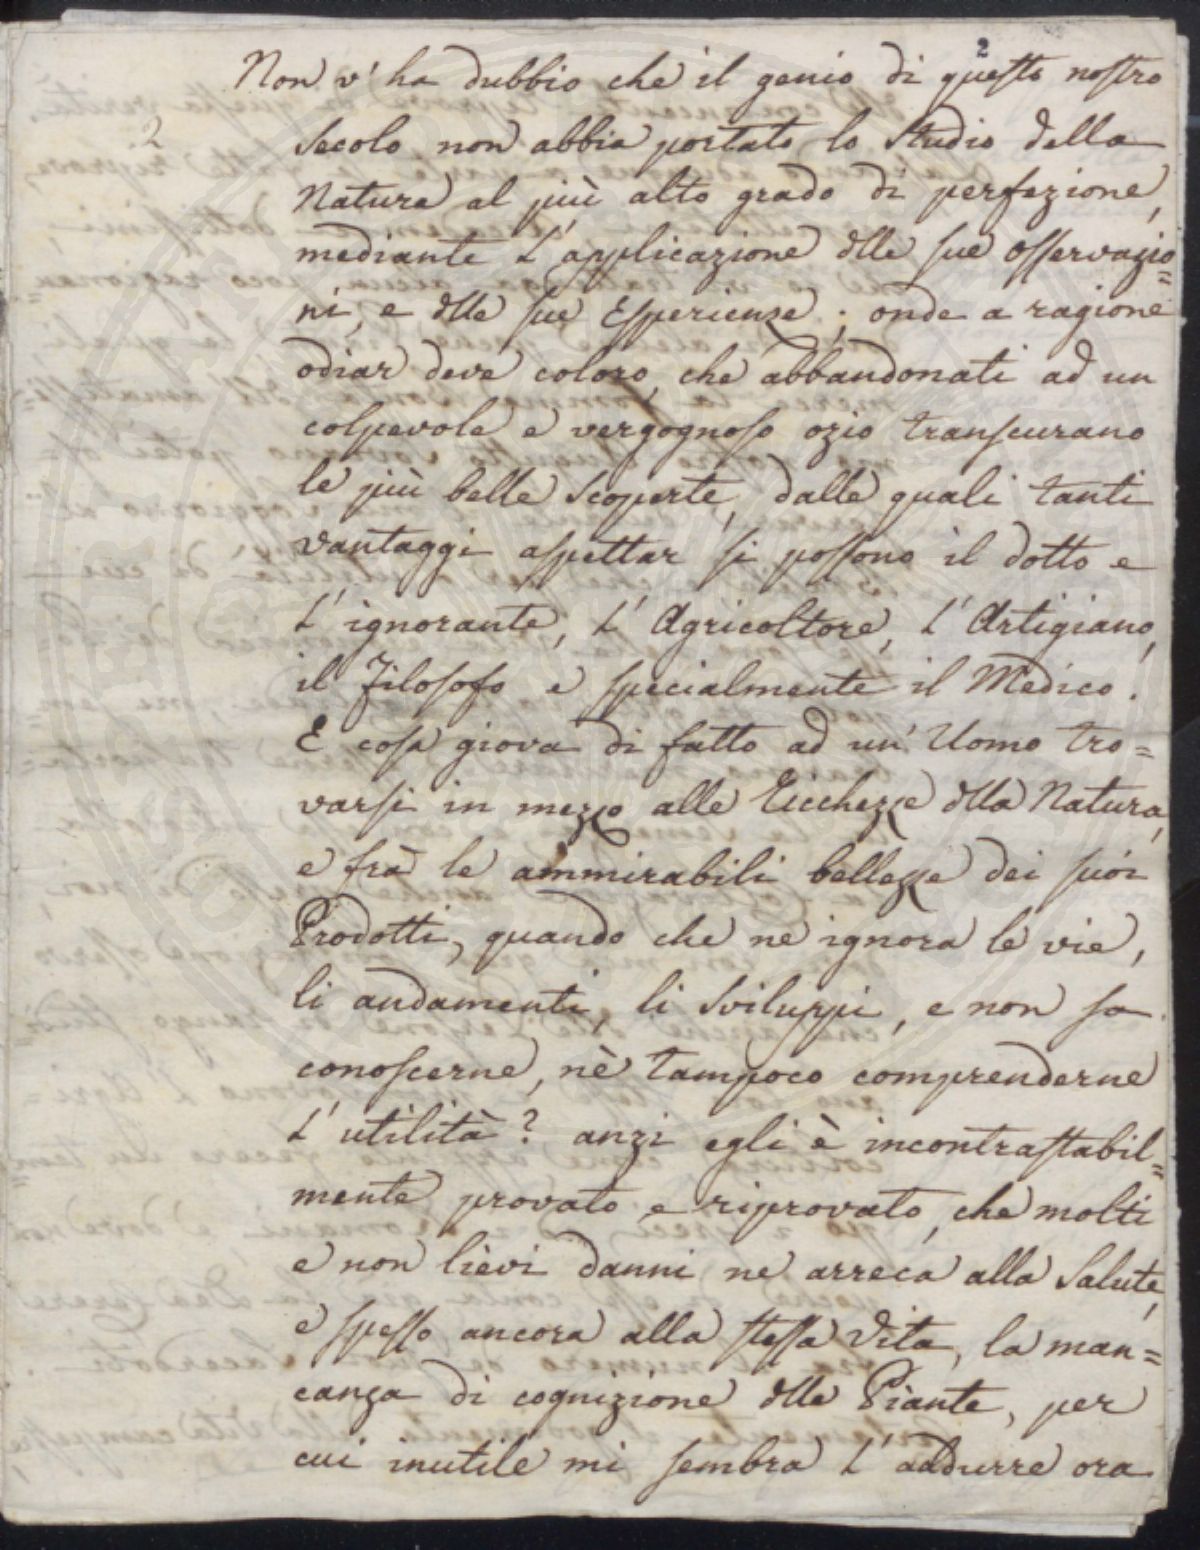 2
Non v' ha dubbio che il genio di questo nostro
2
secolo non abbia portato lo studio della
Natura al più alto grado di perfezione,
mediante l'applicazione dlle sue osservazio=
ni, e dlle sue Esperienze; onde a ragione
odiar deve coloro, che abbandonati ad un
colpevole e vergognoso ozio transcurano
le più belle scoperte, dalle quali tanti
vantaggi aspettar si possono il dotto e
l' ignorante, l' Agricoltore, l' Artigiano,
il Filosofo e specialmente il Medico.
E cosa giova di fatto ad un' Uomo tro=
varsi in mezzo alle Ricchezze dlla Natura,
e frà le ammirabili bellezze dei suoi
Prodotti, quando che ne ignora le vie,
li andamenti, li sviluppi, e non sa
conoscerne, nè tampoco comprenderne
l' utilità? anzi egli è incontrastabil=
mente provato e riprovato, che molti
e non lievi danni ne arreca alla salute,
e spesso ancora alla stessa Vita, la man=
canza di cognizione dlle Piante, per
cui inutile mi sembra l' addurre ora